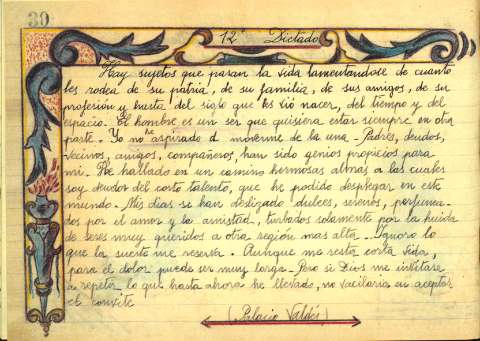 30
12 Dictado
Hay sujetos que pasan la vida lamentandose de cuanto
les rodea de su patria, de su familia, de sus amigos, de su
profesión y hasta del siglo que les vió nacer, del tiempo y del
espacio. El hombre es un ser que quisiera estar siempre en otra
parte. Yo no he aspirado á moverme de la una - Padres, deudos,
vecinos, amigos, compañeros, han sido genios propicios para
mi. He hallado en un camino hermosas almas a las cuales
soy deudor del corto talento, que he podido desplegar en este
mundo - Mis dias se han deslizado dulces, serenos, perfuma-
dos por el amor y la amistad, turbados solamente por la huida
de seres muy queridos a otra región mas alta - Ignoro lo
que la suerte me reserva. Aunque me resta corta vida,
para el dolor puede ser muy larga - Pero si Dios me invitare
a repetir lo que hasta ahora he llevado, no vacilaria en aceptar
el convite
(Palacio Valdés)